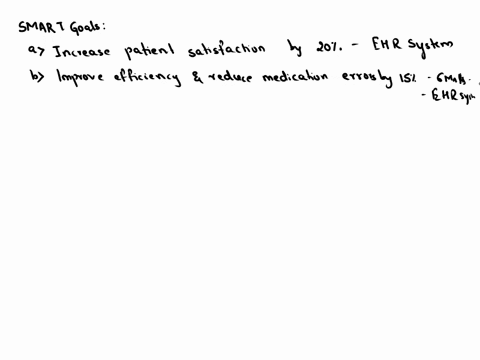 SMART Goals:
a) Increase patient satisfaction by 20% - EHR System
b) Improve efficiency & reduce medication errors by 15% - 6 Mnths.
- EHR Sys